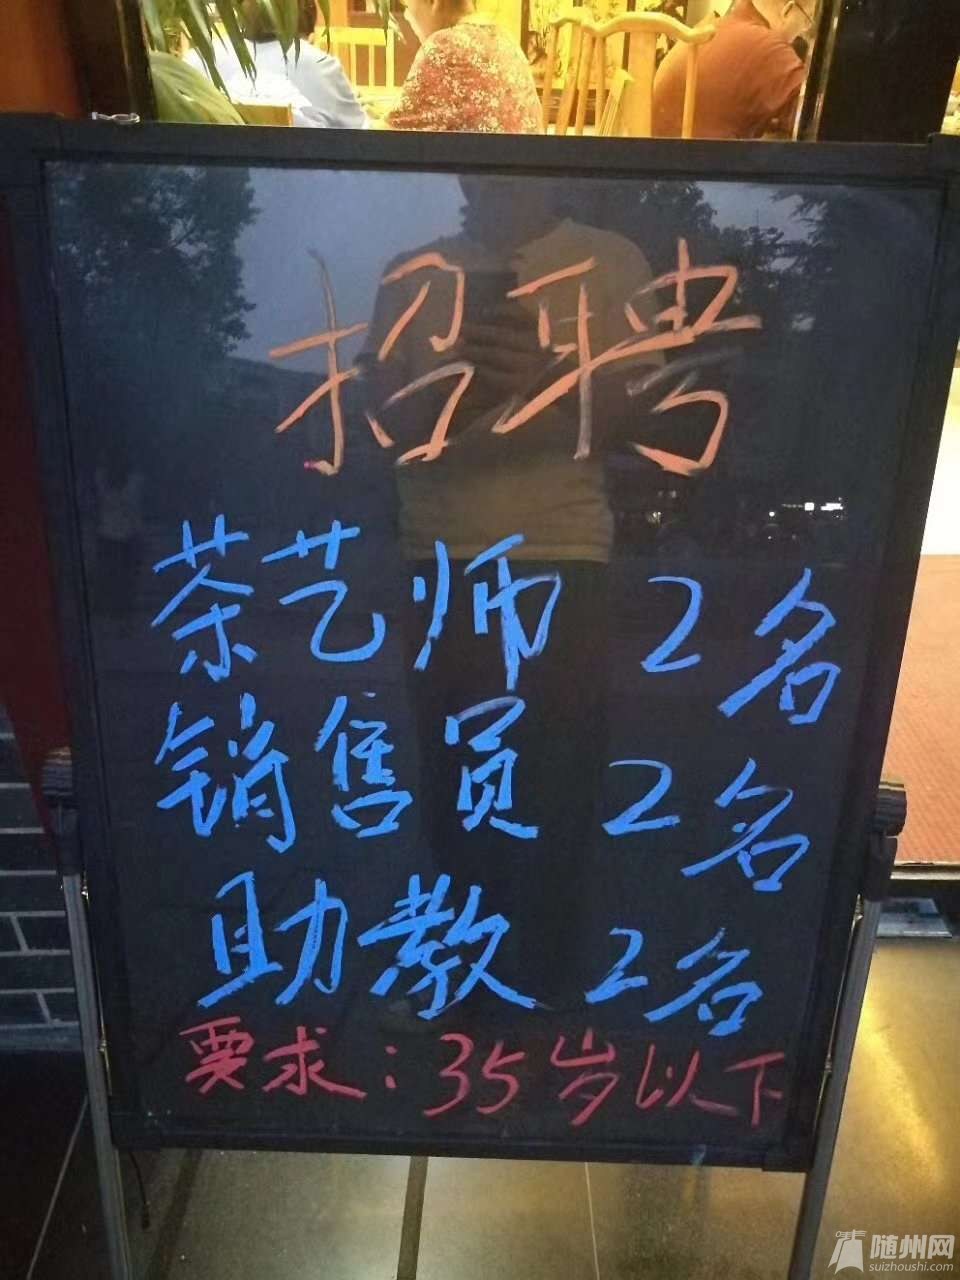 招聘
茶艺师 2名
销售员 2名
助教 2名
要求:35岁以下
随州网
suizhoushi.com